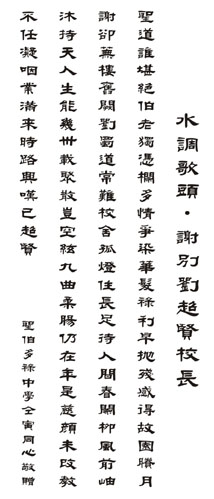 水調歌頭·謝別劉超賢校長
聖道誰堪絕伯老獨憑欄多情爭染華髮祿利早拋殘感得故園勝月
謝卻蕪樓舊閣劉蜀道常難校舍孤燈住長足待人間春閣柳風前岫
沐持天人生能幾卅載聚散豈空弦九曲柔腸仍在年是慈顏未改教
不任凝咽業滿來時路興嘆已超賢
聖伯多祿中學仝寅同心敬贈